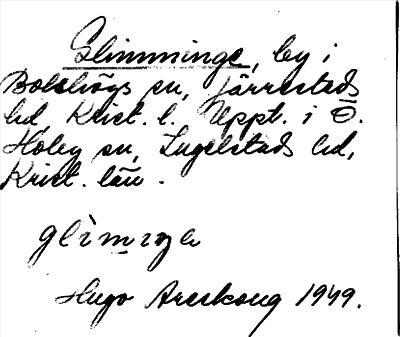 Glimminge, by i
Bolshögs sn, Järrestads
hd, Krist. l. Uppt. i Ö.
Hoby sn, Ingelstads hd,
Krist. län.
Hugo Areskoug 1949.